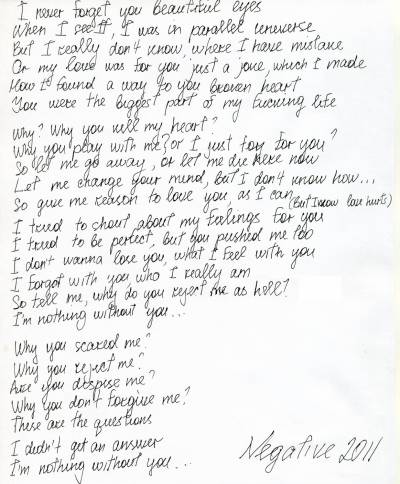 I never forget you beautiful eyes
When I see it, I was in parallel universe
But I really don't know, where I have mistake
Or my love was for you just a joke, which I made
How I found a way to you broken heart
You were the biggest part of my fucking life
Why? Why you kill my heart?
Why you play with me? or I just toy for you?
So let me go away, or let me die here now
Let me change your mind, but I don't know how...
So give me reason to love you, as I can (But I know love hurts)
I tried to shout about my feelings for you
I tried to be perfect, but you pushed me too
I don't wanna lose you, what I feel with you
I forgot with you, who I really am
So tell me, why do you reject me as hell?
I'm nothing without you...
Why you scared me?
Why you reject me?
Are you dispise me?
Why you don't forgive me?
These are the questions
I didn't get an answer
I'm nothing without you...
Negative 2011